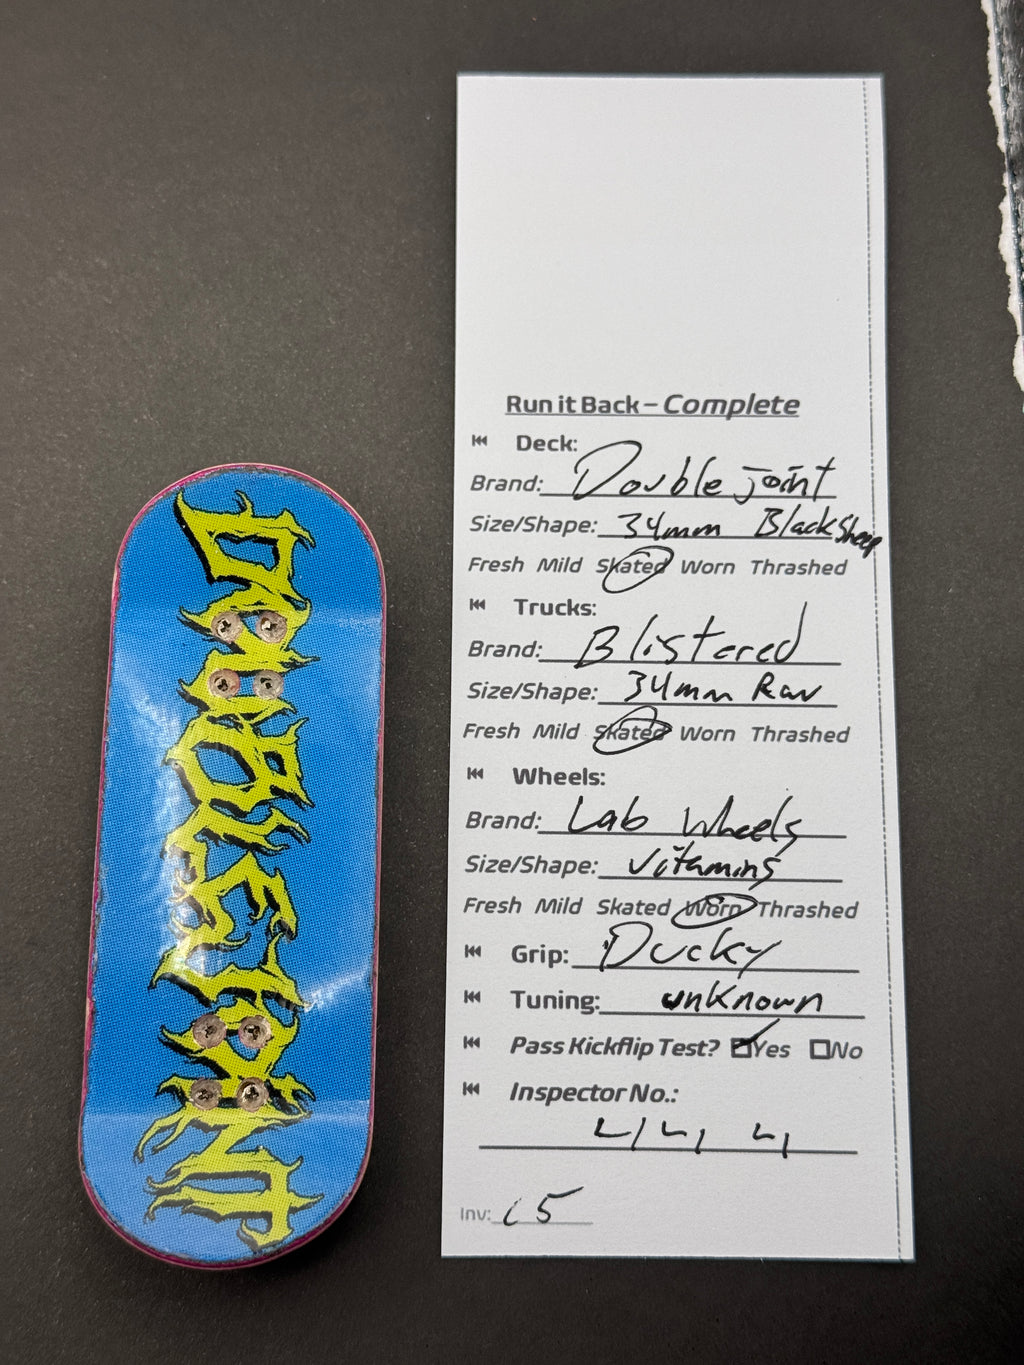 DOUBLEJOINT
Run it Back – Complete
Deck:
Brand: Double joint
Size/Shape: 34mm BlackSheep
Fresh Mild Skated Worn Thrashed
Trucks:
Brand: Blistered
Size/Shape: 34mm Raw
Fresh Mild Skated Worn Thrashed
Wheels:
Brand: Lab Wheels
Size/Shape: Vitamins
Fresh Mild Skated Worn Thrashed
Grip: Ducky
Tuning: unknown
Pass Kickflip Test? Yes No
Inspector No.:
Inv: C5